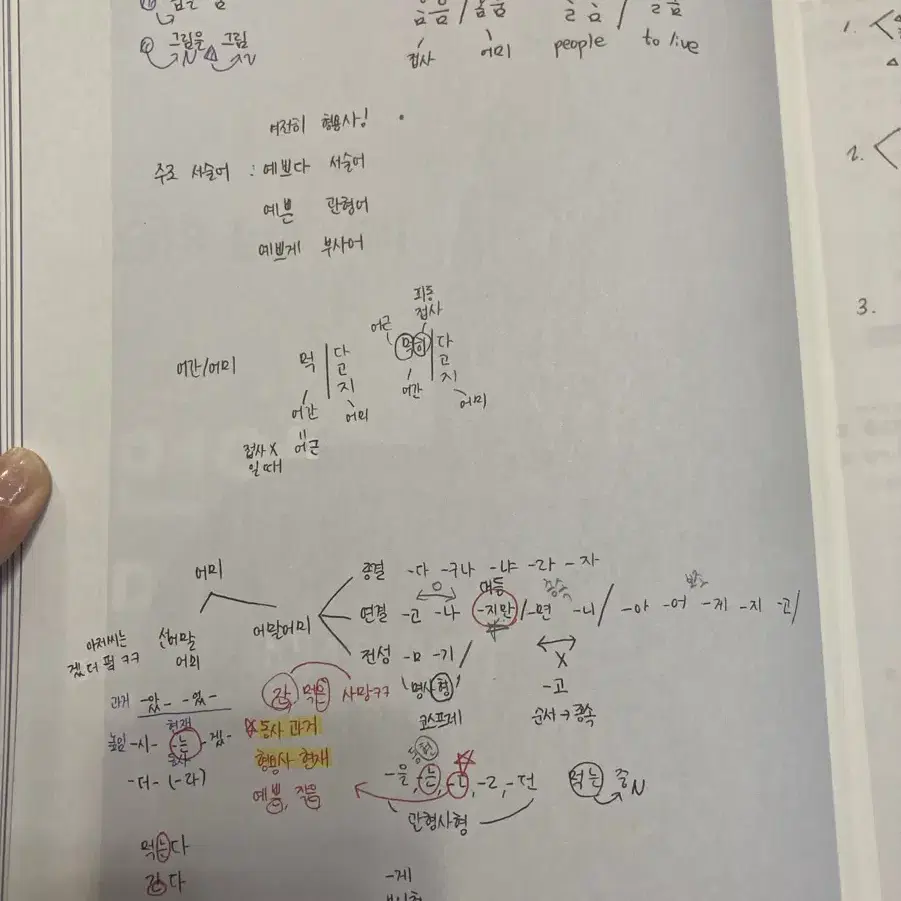 그림을 그림
N N
접사 어미 people to live
여전히 형용사!
주로 서술어 : 예쁘다 서술어
예쁜 관형어
예쁘게 부사어
피동
접사
어근
어간/어미 먹 다 먹히 다
고 고
지 지
어간 어미 어간 어미
접사 X 어근
일 때
어미
종결 -다 -구나 -냐 -라 -자
대등 종속 보조
어말어미 연결 -고 -나 -지만 / -면 -니 / -아 -어 -게 -지 -고 /
선어말
어미
전성 -ㅁ -기 /
명사형
코스프레
X
-고
순서 → 종속
과거 -았- -었-
현재
높임 -시- -는- -겠-
동사
-더- (-라)
간, 먹은 사망ㅋㅋ
동사 과거
형용사 현재
예쁜, 작은
-은, -는, -ㄴ, -ㄹ, -던
관형사형
먹는 중 N
먹는다
간다
-게
1.
2.
3.